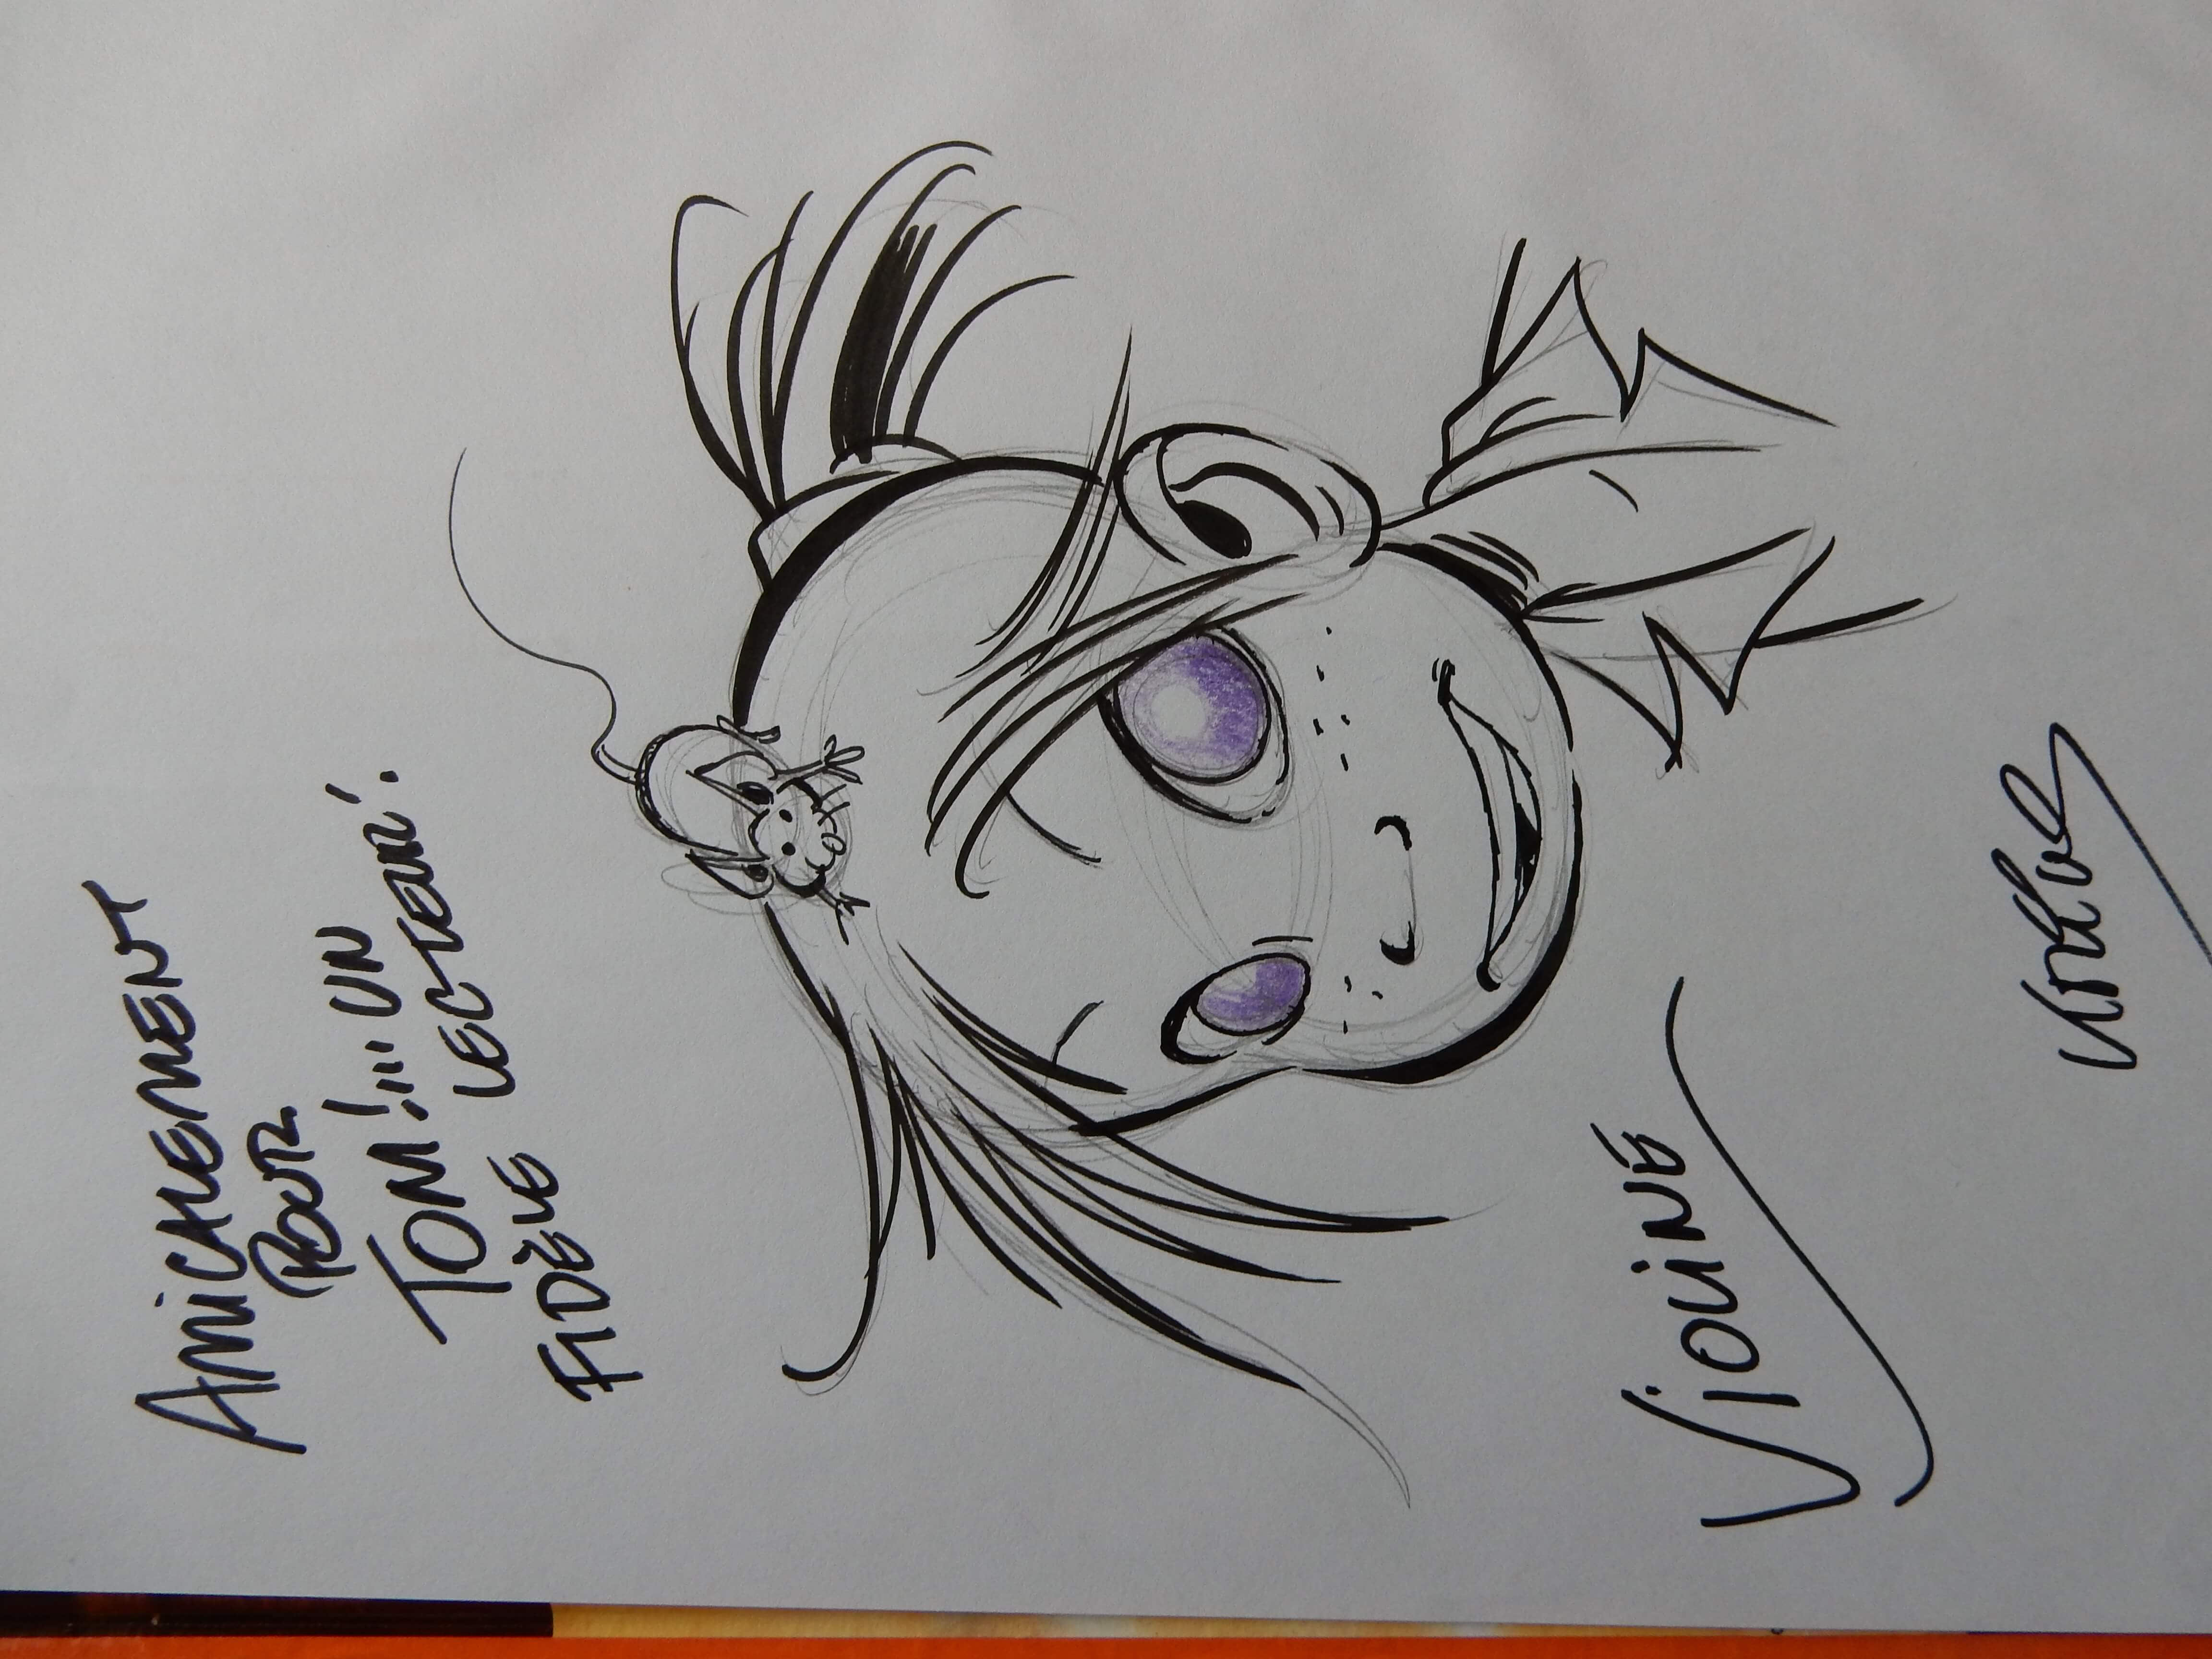 AMiCALEMENT
POUR
TOM!... UN
FIDÈLE LECTEUR!
ViOLiNE